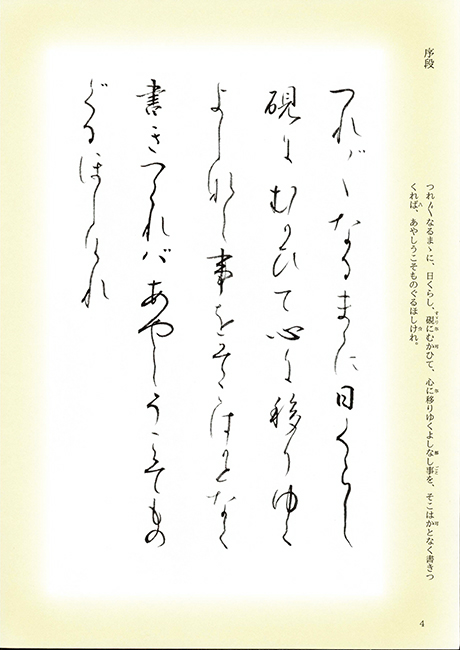 序段
つれ〴〵なるまゝに、日くらし、硯にむかひて、心に移りゆくよしなし事を、そこはかとなく書きつ
くれば、あやしうこそものぐるほしけれ。
つれ〴〵なるまゝに日くらし
硯にむかひて心に移りゆく
よしなし事をそこはかとなく
書きつくれバあやしうこそもの
ぐるほしけれ
4